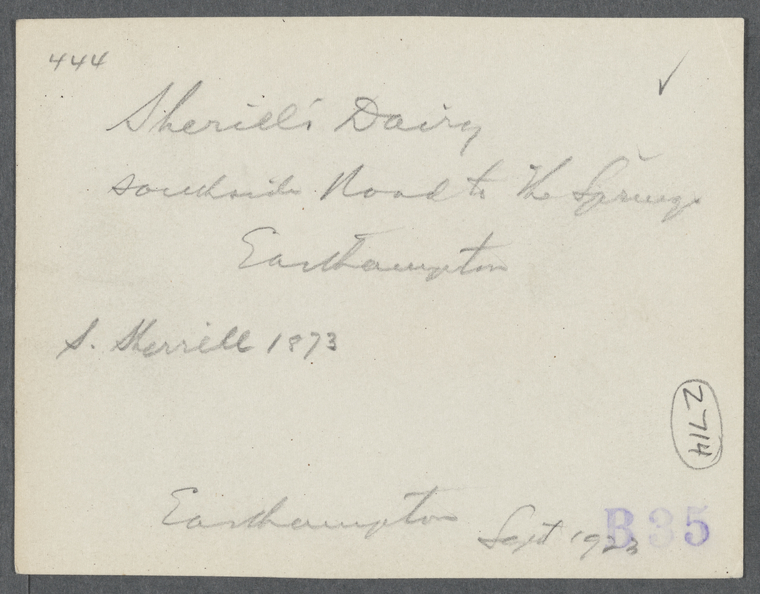 444
Sherill's Dairy
southside Road to The Springs
Easthampton
S. Sherrill 1873
2714
Easthampton Sept 1923
B35